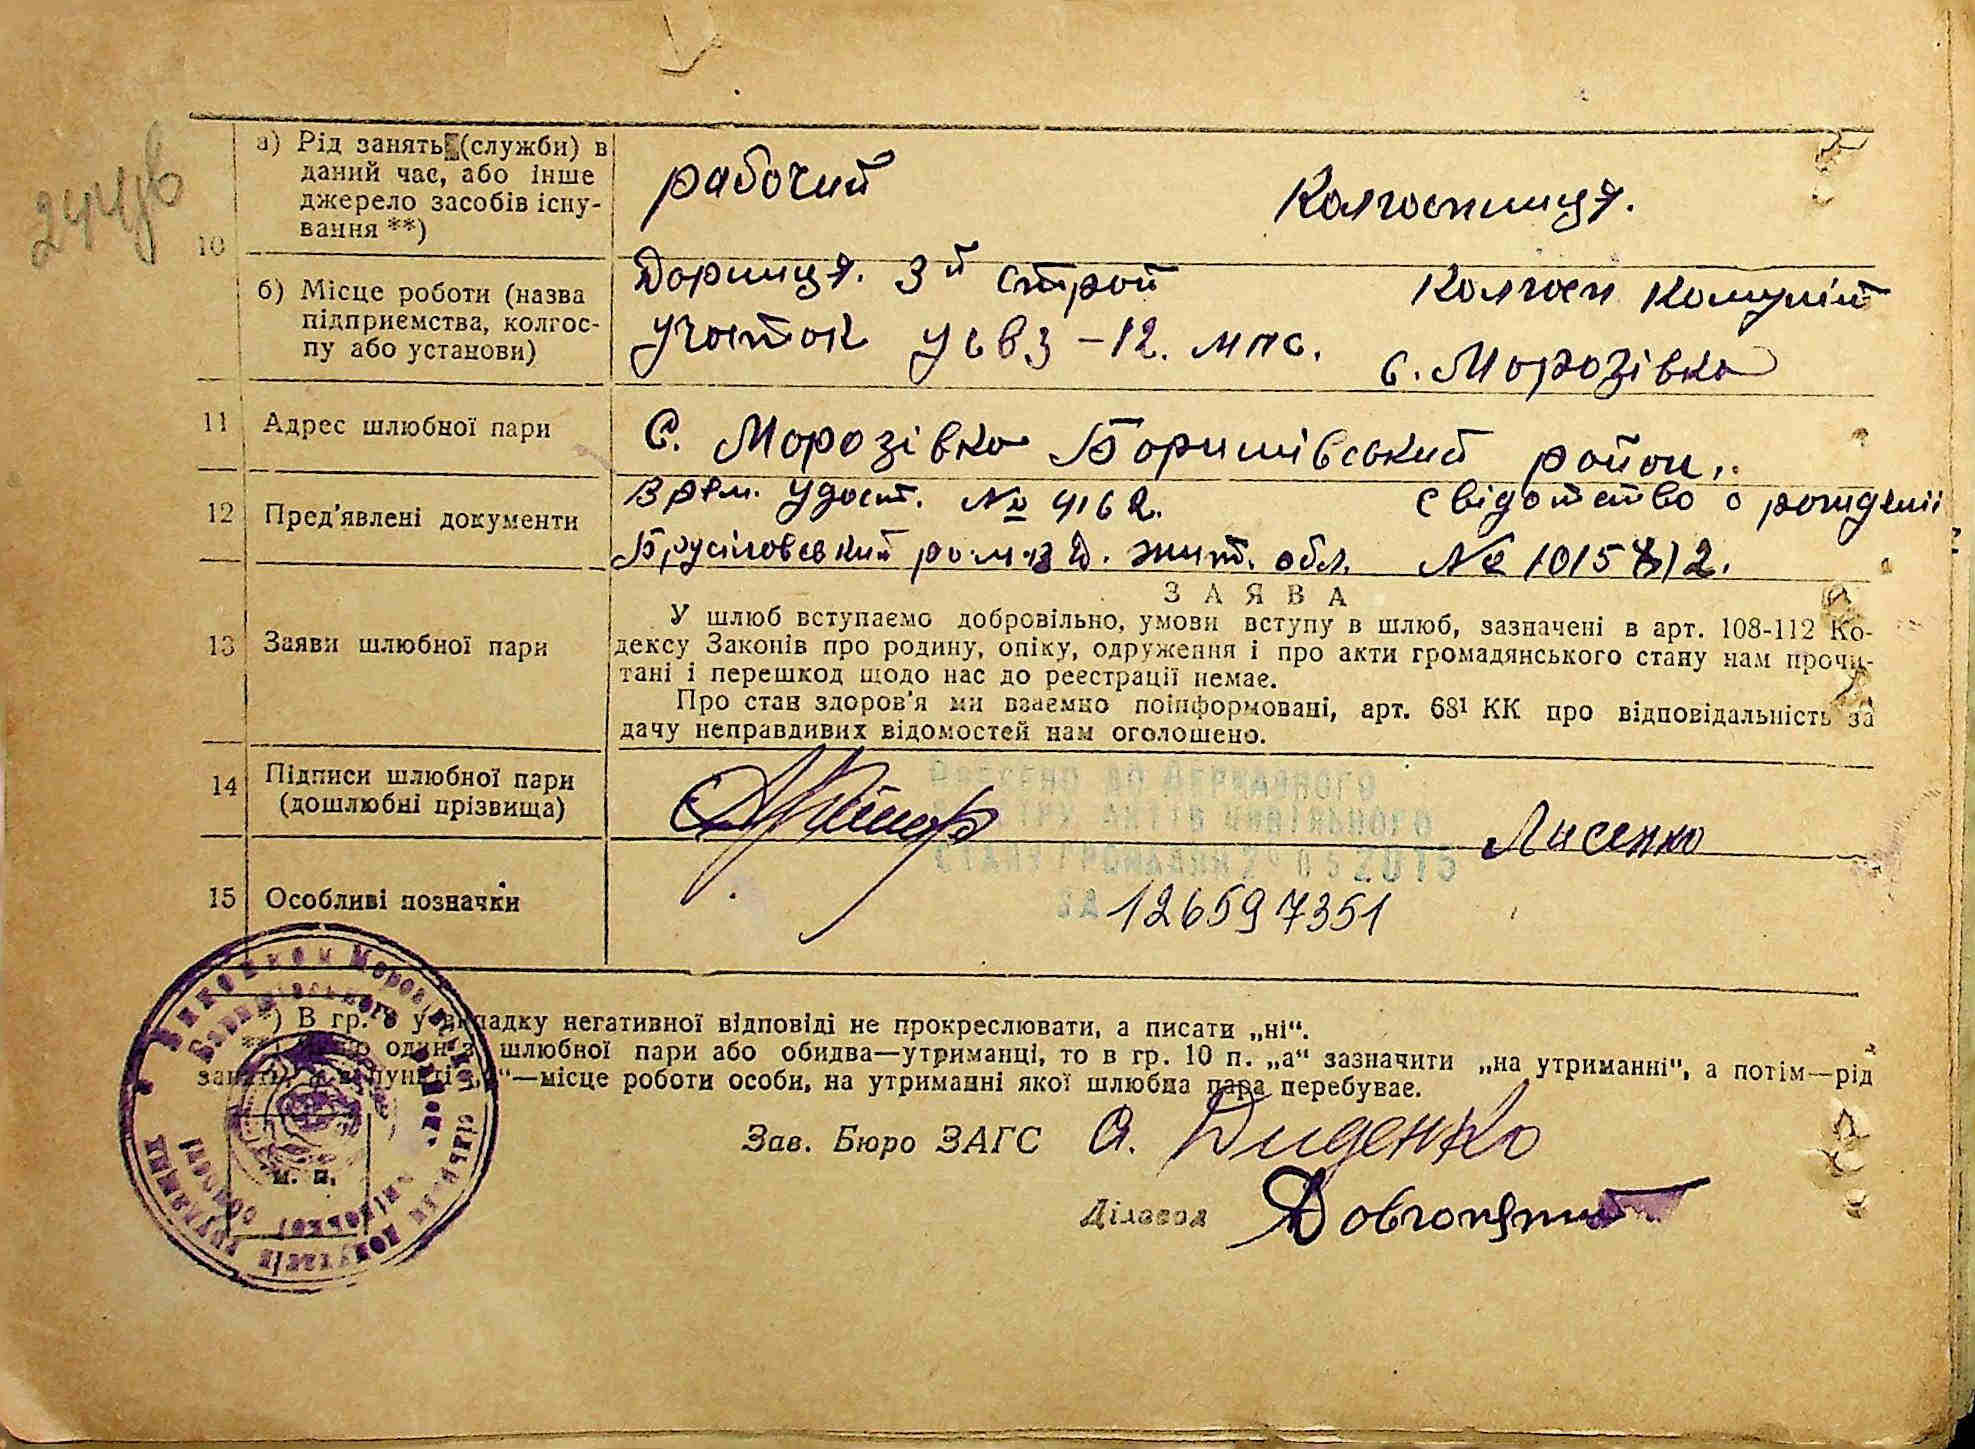 а) Рід занять (служби) в
даний час, або інше
джерело засобів існу-
вання **)
рабочий
Колгоспниця.
10
б) Місце роботи (назва
підприємства, колгос-
пу або установи)
Дарниця. 3й строй
участок УСВЗ-12. МПС.
Колгосп Комуніст
с. Морозівка
11
Адрес шлюбної пари
С. Морозівка Баришівський район.
12
Пред'явлені документи
Врем. удост. № 4162.
Брусіловський ро МВД. жит. обл.
свідотство о рождении
№ 1015812.
13
Заяви шлюбної пари
ЗАЯВА
У шлюб вступаємо добровільно, умови вступу в шлюб, зазначені в арт. 108-112 Ко-
дексу Законів про родину, опіку, одруження і про акти громадянського стану нам прочи-
тані і перешкод щодо нас до реєстрації немає.
Про стан здоров'я ми взаємно поінформовані, арт. 68¹ КК про відповідальність за
дачу неправдивих відомостей нам оголошено.
14
Підписи шлюбної пари
(дошлюбні прізвища)
Лисенко
до Державного
актів цивільного
стану громадян 2015
за 126597351
15
Особливі позначки
*) В гр. 8 у випадку негативної відповіді не прокреслювати, а писати „ні“.
**) Якщо один з шлюбної пари або обидва—утриманці, то в гр. 10 п. „а“ зазначити „на утриманні“, а потім—рід
занять, а в пункті „б“—місце роботи особи, на утриманні якої шлюбна пара перебуває.
м. п.
Зав. Бюро ЗАГС А. Диденко
Діловод